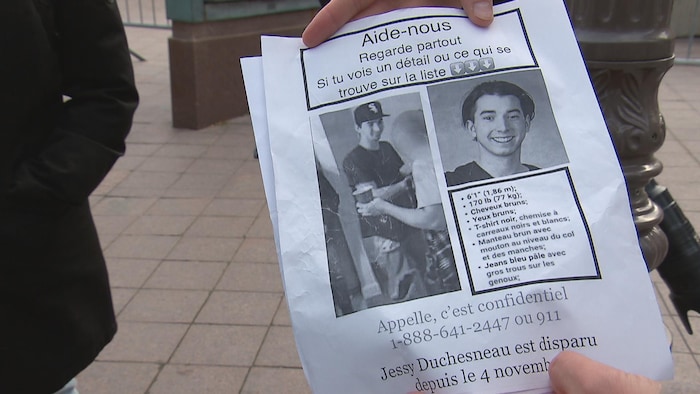 Aide-nous
Regarde partout
Si tu vois un détail ou ce qui se
trouve sur la liste ⬇⬇⬇
• 6'1" (1,86 m);
• 170 lb (77 kg);
• Cheveux bruns;
• Yeux bruns;
• T-shirt noir, chemise à
carreaux noirs et blancs;
• Manteau brun avec
mouton au niveau du col
et des manches;
• Jeans bleu pâle avec
gros trous sur les
genoux;
Appelle, c'est confidentiel
1-888-641-2447 ou 911
Jessy Duchesneau est disparu
depuis le 4